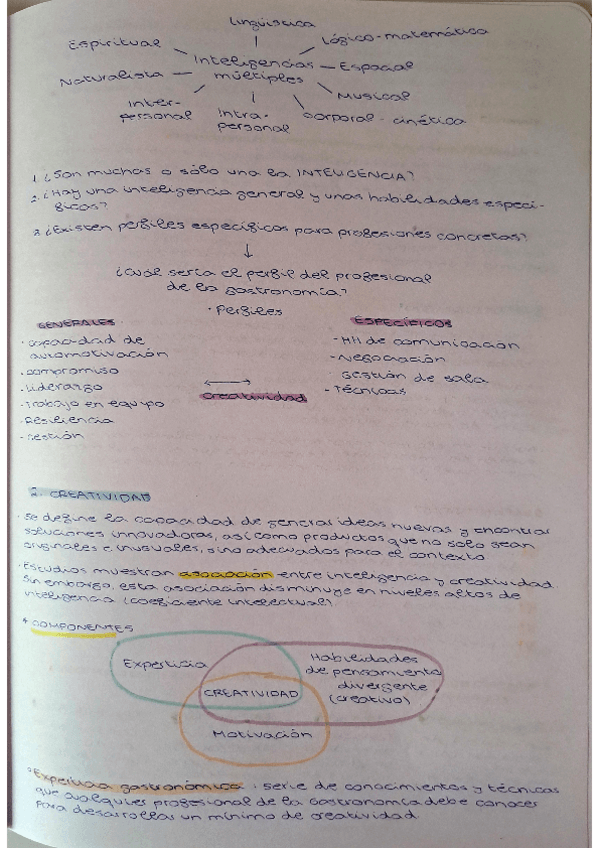 Lingüística
Espiritual
Lógico-matemática
Inteligencias
múltiples
Espacial
Naturalista
Musical
Inter-
personal
Intra-
personal
Corporal-cinética
1. ¿Son muchas o sólo una la INTELIGENCIA?
2. ¿Hay una inteligencia general y unas habilidades especí-
ficas?
3. ¿Existen perfiles específicos para profesiones concretas?
↓
¿Cuál sería el perfil del profesional
de la gastronomía?
· Perfiles
GENERALES
· capacidad de
automotivación
· compromiso
· Liderazgo
· Trabajo en equipo
· Resiliencia
· Gestión
↔
creatividad
ESPECÍFICOS
- HH de comunicación
- Negociación
Gestión de sala
- Técnicas
2. CREATIVIDAD
· Se define la capacidad de generar ideas nuevas y encontrar
soluciones innovadoras, así como productos que no solo sean
originales e inusuales, sino adecuados para el contexto
· Estudios muestran asociación entre inteligencia y creatividad.
Sin embargo, esta asociación disminuye en niveles altos de
inteligencia (coeficiente intelectual).
* COMPONENTES
Experticia
Habilidades
de pensamiento
divergente
(creativo)
CREATIVIDAD
Motivación
* Experticia gastronómica: serie de conocimientos y técnicas
que cualquier profesional de la gastronomía debe conocer
para desarrollar un mínimo de creatividad